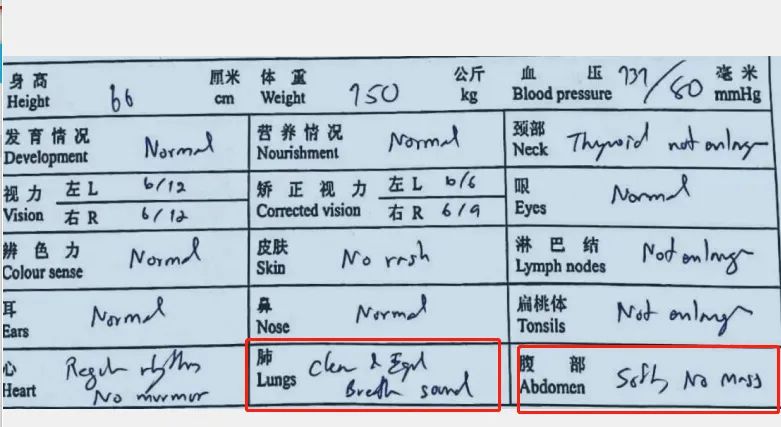 身高 厘米 体重 公斤 血压 毫米
Height 66 cm Weight 150 kg Blood pressure 131/80 mmHg
发育情况 营养情况 颈部
Development Normal Nourishment Normal Neck Thyroid not enlarge
视力 左 L 6/12 矫正视力 左 L 6/6 眼
Vision 右 R 6/12 Corrected vision 右 R 6/9 Eyes Normal
辨色力 皮肤 淋巴结
Colour sense Normal Skin No rash Lymph nodes Not enlarge
耳 鼻 扁桃体
Ears Normal Nose Normal Tonsils Not enlarge
心 Regular rhythm 肺 Clear & Equal 腹部
Heart No murmur Lungs Breath sound Abdomen Soft, No mass